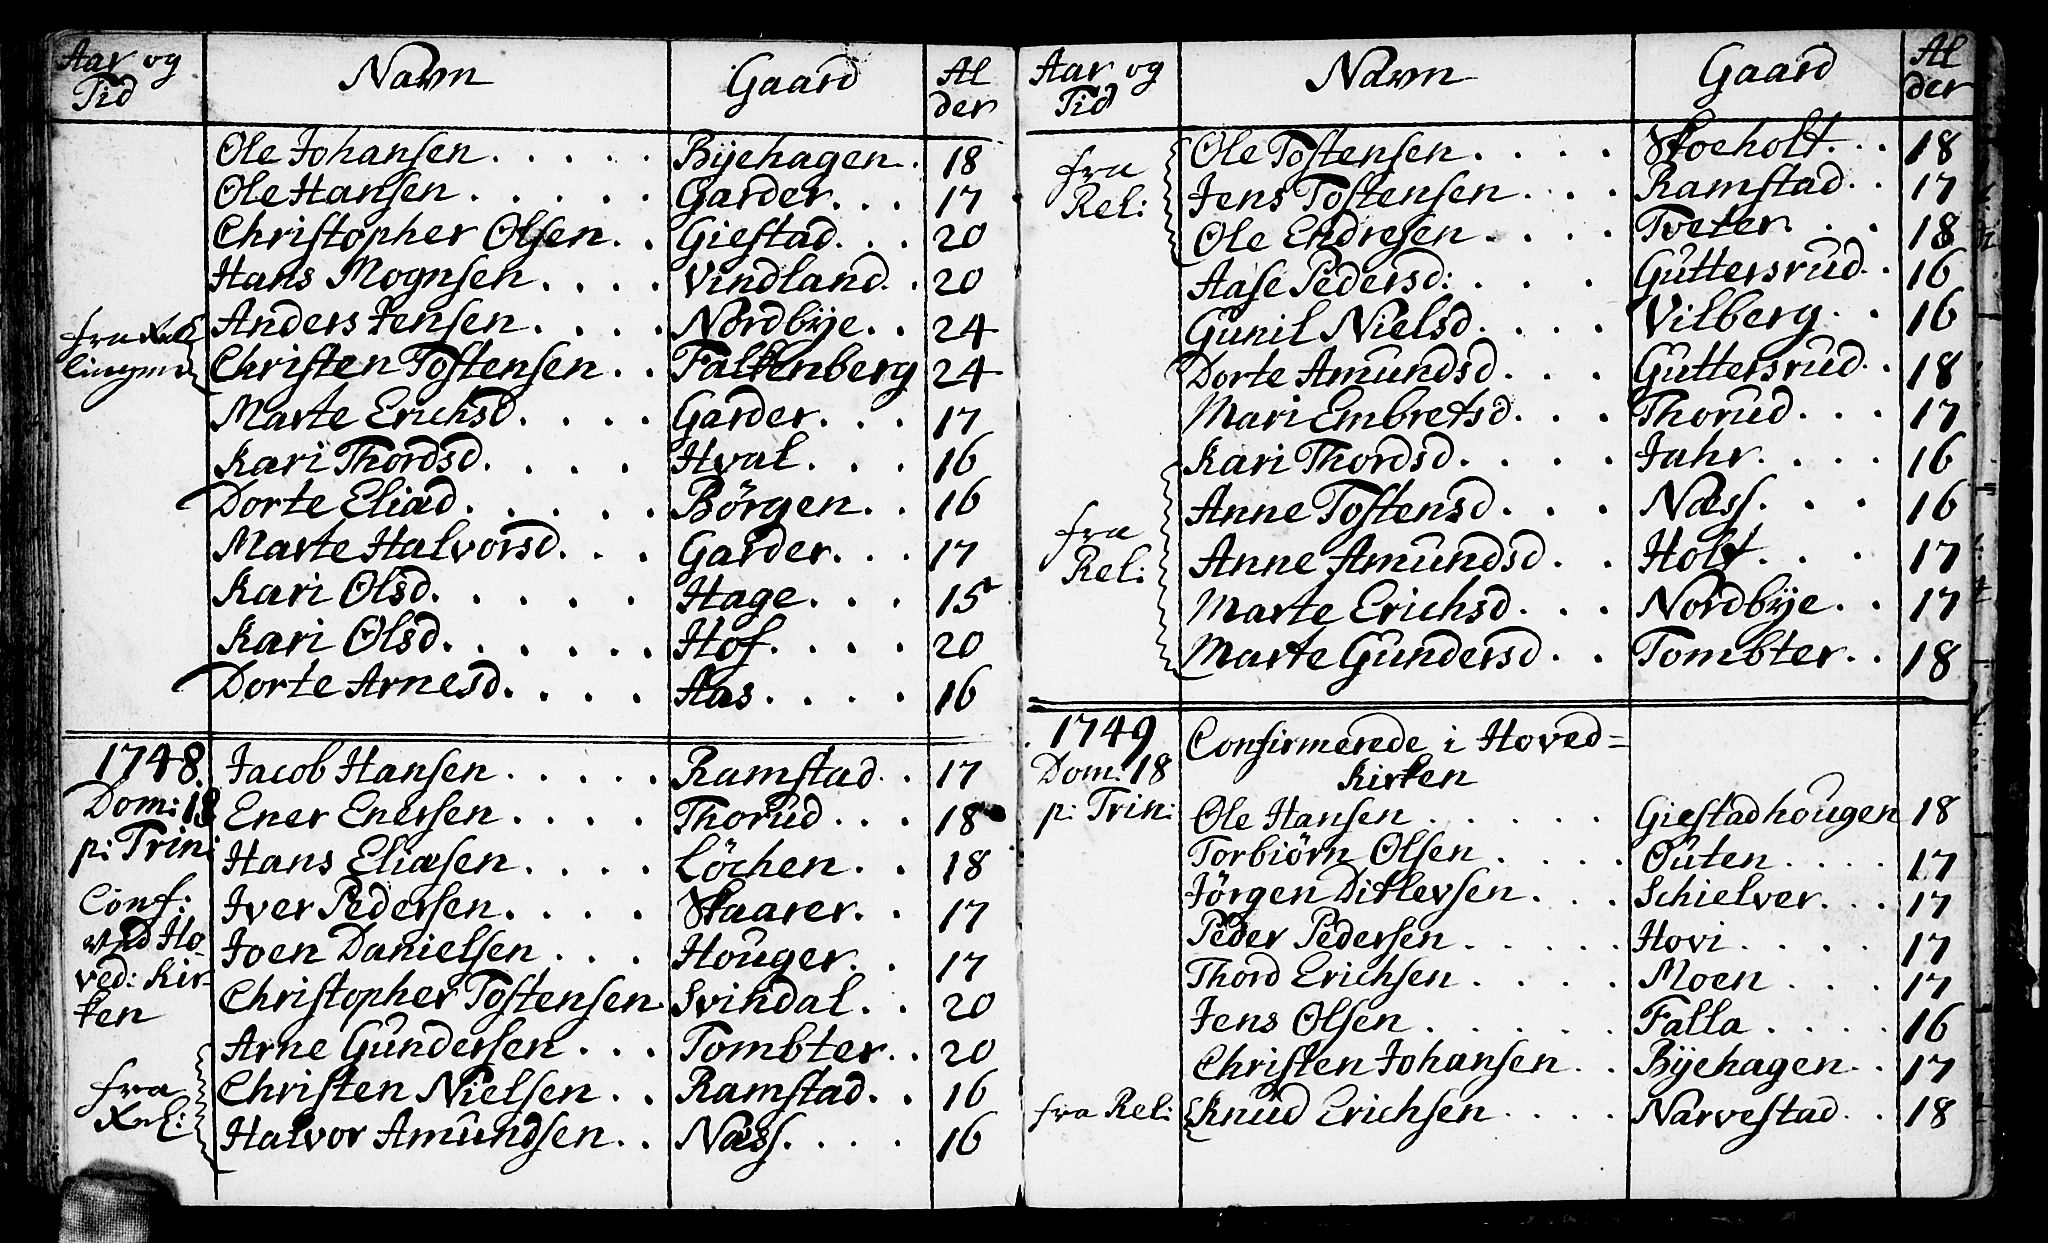 Aar og Tid Navn Gaard Al der
Ole Johansen. . . . . Byehagen. 18
Ole Hansen. . . . . Garder. . . 17
Christopher Olsen. . Giestad. . . 20
Hans Mognsen. . . . Vindland. . 20
fra Rel Anders Jensen. . . . Nordbye. . 24
lingen Christen Tostensen. . Falkenberg 24
Marte Erichsd. . . . Garder. . . 17
Kari Thordsd. . . . Hval. . . 16
Dorte Eliæd. . . . . Börgen. . 16
Marte Halvorsd. . . Garder. . . 17
Kari Olsd. . . . . . Hage. . . 15
Kari Olsd. . . . . . Hof. . . . 20
Dorte Arnesd. . . . Aas. . . . 16
1748. Jacob Hansen. . . . . Ramstad. . 17
Dom: 18 Ener Enersen. . . . Thorud. . . 18
p: Trin: Hans Eliæsen. . . . Löchen. . 18
Conf: Iver Pedersen. . . . Skaarer. . 17
ved Ho Joen Danielsen. . . Houger. . 17
ved: Kir- Christopher Tostensen. Svindal. . 20
ken
Arne Gundersen. . . Tombter. . 20
fra Christen Nielsen. . Ramstad. . 16
Rel: Halvor Amundsen. . Næss. . . . 16
Aar og Tid Navn Gaard Al der
fra Ole Tostensen. . . . Skoeholt. . . 18
Rel: Jens Tostensen. . . Ramstad. . 17
Ole Endresen. . . . Tveter. . . 18
Aase Pedersd: . . . Guttersrud. . 16
Gunil Nielsd. . . . Vilberg. . 16
Dorte Amundsd. . . Guttersrud. . 18
Mari Embretsd. . . Thorud. . . 17
Kari Thordsd. . . . Jahr. . . . 16
fra Anne Tostensd. . . . Næss. . . 16
Rel: Anne Amundsd. . Holt. . . 17
Marte Erichsd. . . Nordbye. . 17
Marte Gundersd. . Tombter. . 18
1749 Confirmerede i Hoved=
Dom: 18 Kirken
p: Trin: Ole Hansen. . . . . Giestadhougen 18
Torbiörn Olsen. . . . Outen. . . . 17
Jörgen Ditlevsen. . . Schielver. . . 17
Peder Pedersen. . . . . Hovi. . . . 17
Thord Erichsen. . . . Moen. . . . 17
Jens Olsen. . . . . Falla. . . . 16
Christen Johansen. . Byehagen. . 17
fra Rel: Knud Erichsen. . . . Narvestad. . 18